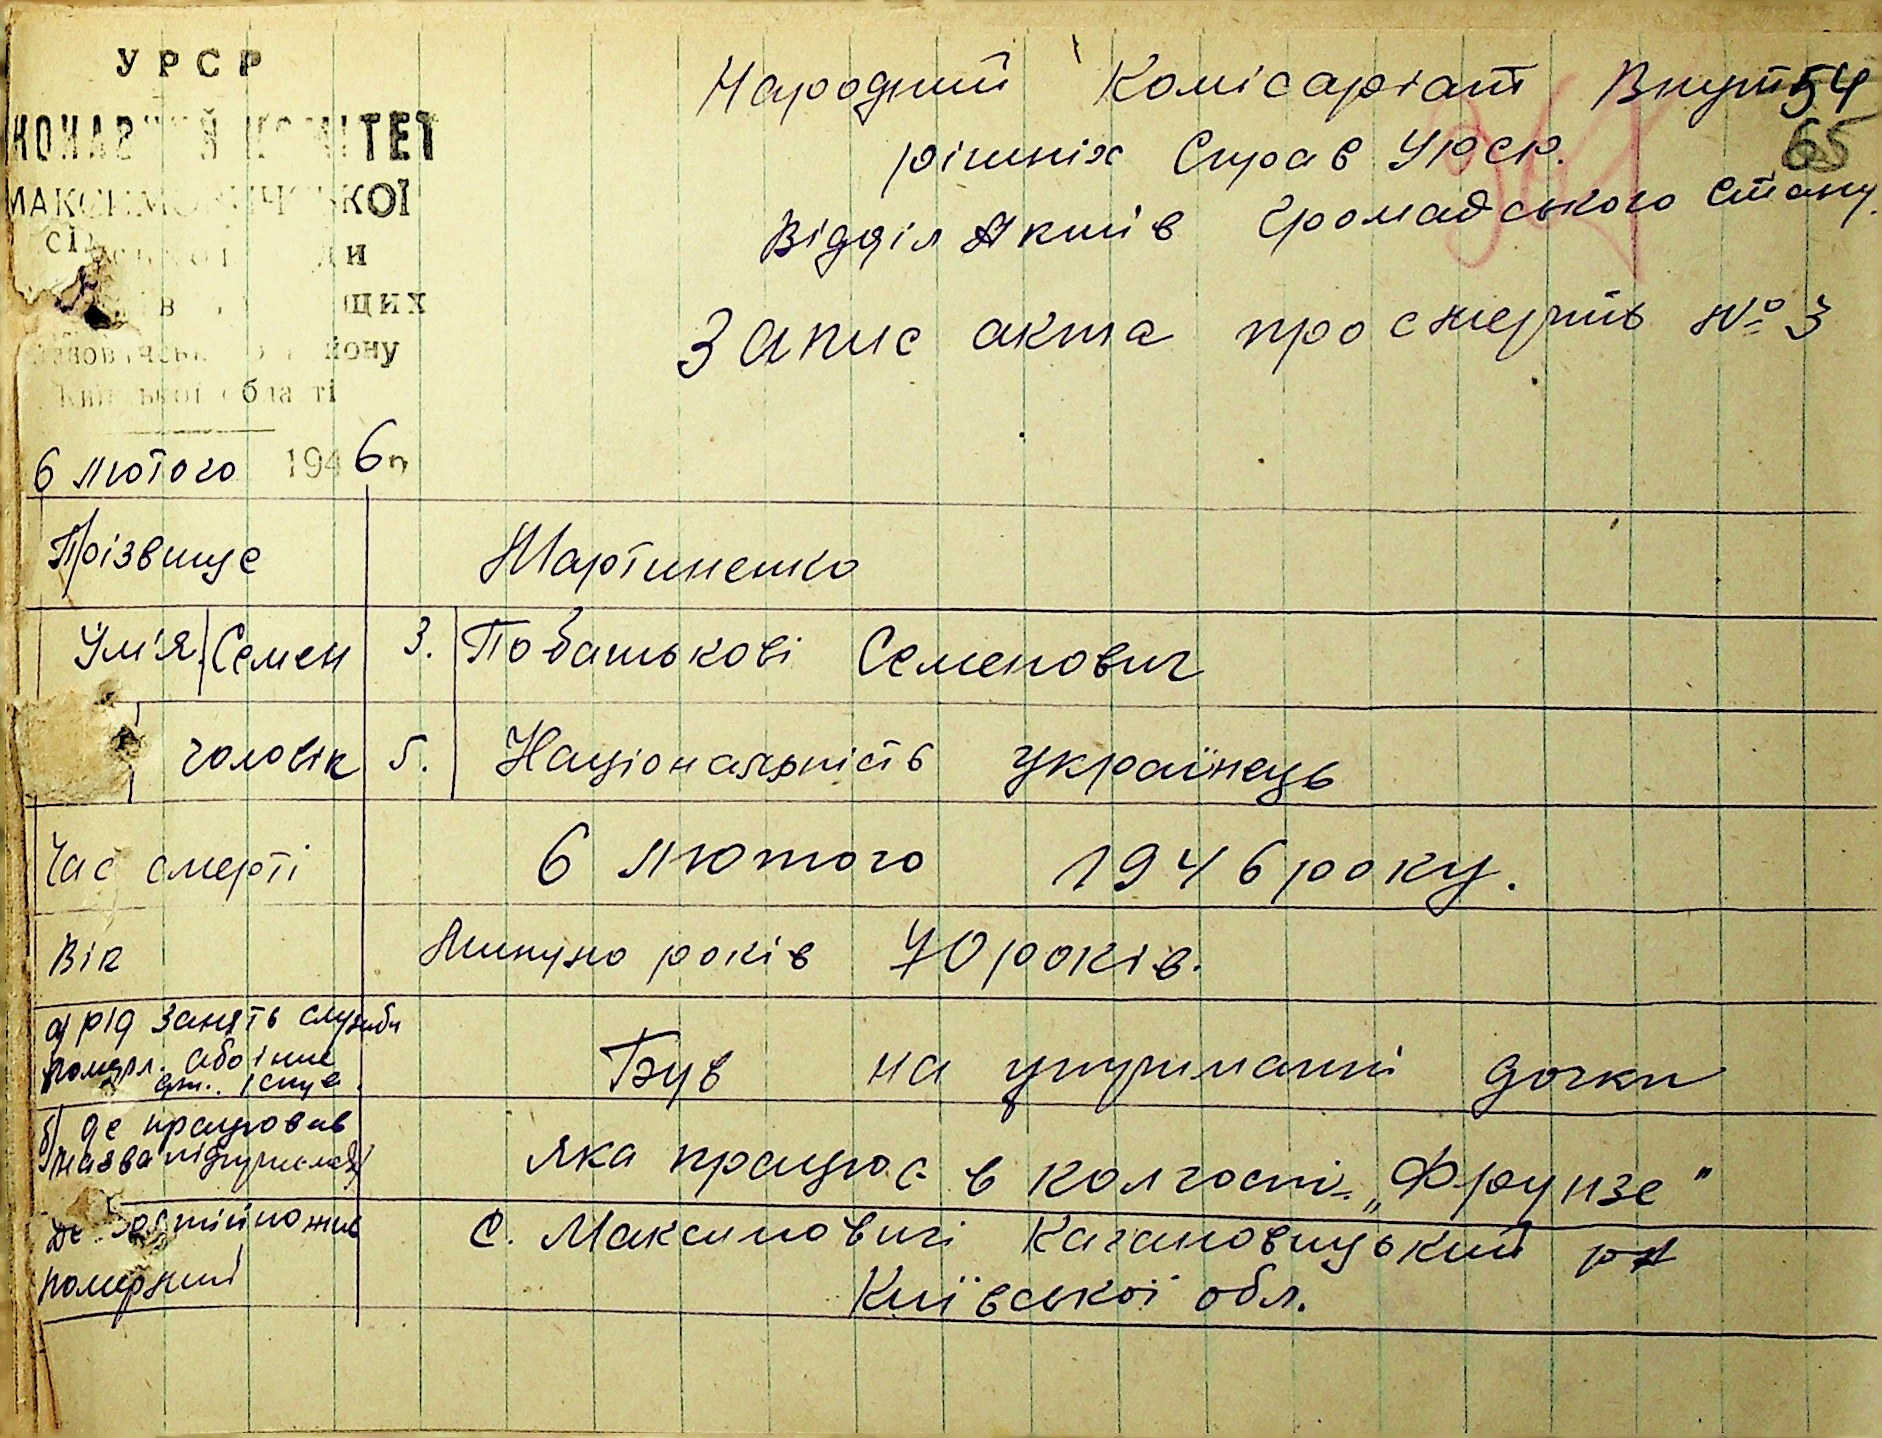 УРСР
КОНАВ Й КОМІТЕТ
МАКСИМОВИЧСЬКОЇ
щих
йону
області
6 лютого 1946 р
Народний Комісаріат Внут 54
рішніх Справ Урср. 65
Відділ Актів Громадського Стану.
Запис акта про смерть № 3
Прізвище Мартиненко
Ім'я. Семен 3. По батькові Семенович
чоловік 5. Національність українець
Час смерті 6 лютого 1946 року.
Вік Минуло років 70 років.
а) рід занять служби
померл. або інше
існув. Був на утриманні дочки
б) де працював
назва підприємст яка працює в колгоспі „Фрунзе"
де постійно жив с. Максимовичі Кагановицький р-н
померший Київської обл.